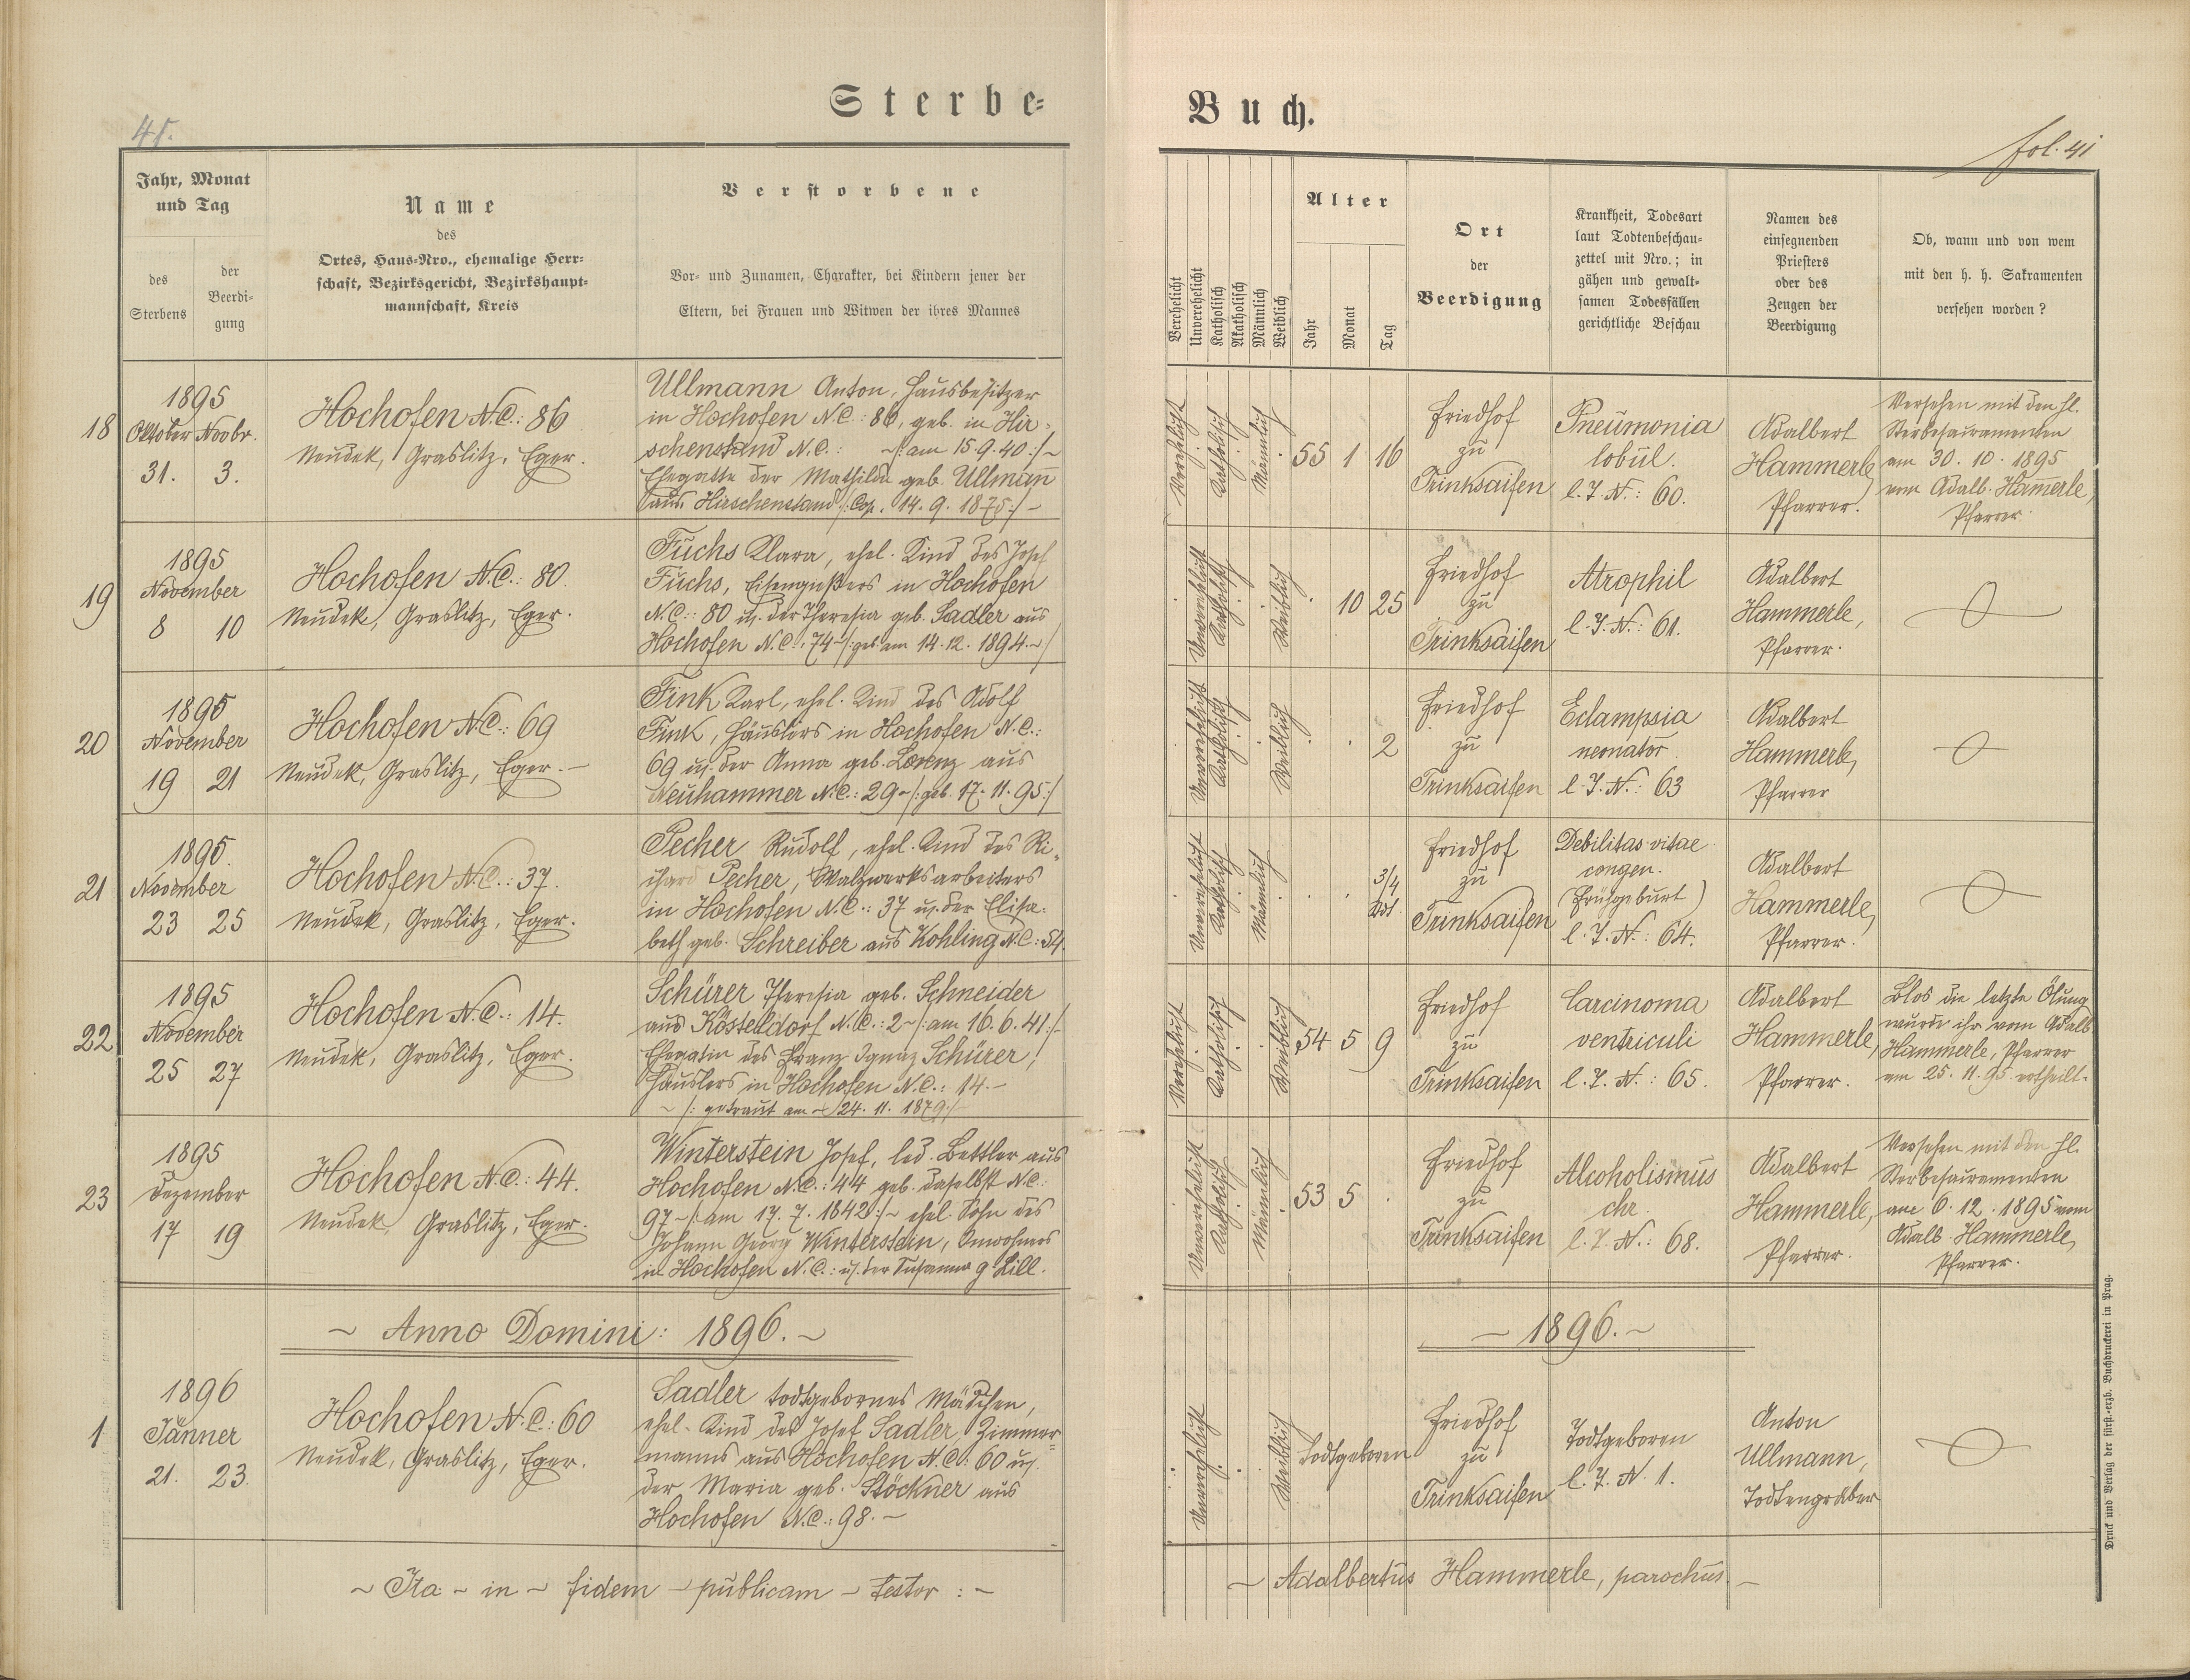 Sterbe-
Buch.
41.
fol. 41
Jahr, Monat
und Tag
des
Sterbens
der
Beerdi-
gung
Name
des
Ortes, Haus-Nro., ehemalige Herr-
schaft, Bezirksgericht, Bezirkshaupt-
mannschaft, Kreis
Verstorbene
Vor- und Zunamen, Charakter, bei Kindern jener der
Eltern, bei Frauen und Witwen der ihres Mannes
Verehelicht
Unverehelicht
Katholisch
Akatholisch
Männlich
Weiblich
Alter
Jahr
Monat
Tag
Ort
der
Beerdigung
Krankheit, Todesart
laut Todtenbeschau-
zettel mit Nro.; in
gähen und gewalt-
samen Todesfällen
gerichtliche Beschau
Namen des
einsegnenden
Priesters
oder des
Zeugen der
Beerdigung
Ob, wann und von wem
mit den h. h. Sakramenten
versehen worden?
18
1895
Oktober Novbr.
31. 3.
Hochofen N.C.: 86
Neudek, Graslitz, Eger.
Ullmann Anton, Hausbesitzer
in Hochofen N.C.: 86, geb. in Hir-
schenstand N.C.: ~/: am 15.9.40 :/~
Ehegatte der Mathilda geb. Ullmann
aus Hirschenstand /: Cop. 14. 9. 1875 :/~
Verehelicht
Katholisch
Männlich
55 1 16
Friedhof
zu
Trinksaifen
Pneumonia
lobul.
l. J. N.: 60.
Adalbert
Hammerle,
Pfarrer.
Versehen mit den hl.
Sterbesacramenten
am 30. 10. 1895
vom Adalb. Hammerle,
Pfarrer.
19
1895
November
8 10
Hochofen N.C.: 80.
Neudek, Graslitz, Eger.
Fuchs Klara, ehel. Kind des Josef
Fuchs, Eisengußers in Hochofen
N.C.: 80 u. der Theresia geb. Sadler aus
Hochofen N.C.: 74 ~/: geb. am 14. 12. 1894 ~/
Unverehelicht
Katholisch
Weiblich
10 25
Friedhof
zu
Trinksaifen
Atrophil
l. J. N.: 61.
Adalbert
Hammerle,
Pfarrer.
20
1895
November
19 21
Hochofen N.C.: 69
Neudek, Graslitz, Eger. -
Fink Karl, ehel. Kind des Adolf
Fink, Häuslers in Hochofen N.C.:
69 u. der Anna geb. Lorenz aus
Neuhammer N.C.: 29 ~/: geb. 17. 11. 95 :/
Unverehelicht
Katholisch
Weiblich
2
Friedhof
zu
Trinksaifen
Eclampsia
neonator.
l. J. N.: 63
Adalbert
Hammerle,
Pfarrer
21
1895.
November
23 25
Hochofen N.C.: 37.
Neudek, Graslitz, Eger.
Pecher Rudolf, ehel. Kind des Ri-
chard Pecher, Walzwerksarbeiters
in Hochofen N.C.: 37 u. der Elisa-
beth geb. Schreiber aus Kohling N.C.: 54.
Unverehelicht
Katholisch
Männlich
3/4
Friedhof
zu
Trinksaifen
Debilitas vitae
congen.
(Frühgeburt)
l. J. N.: 64.
Adalbert
Hammerle,
Pfarrer.
22
1895
November
25 27
Hochofen N.C.: 14.
Neudek, Graslitz, Eger.
Schürer Theresia geb. Schneider
aus Kösteldorf N.C.: 2 ~/: am 16. 6. 41 :/~
Ehegatin des Franz Ignaz Schürer,
Häuslers in Hochofen N.C.: 14. -
~ /: getraut am ~ 24. 11. 1879 :/~
Verehelicht
Katholisch
Weiblich
54 5 9
Friedhof
zu
Trinksaifen
Carcinoma
ventriculi
l. J. N.: 65.
Adalbert
Hammerle,
Pfarrer.
Blos die letzte Ölung
wurde ihr vom Adalb.
Hammerle, Pfarrer
am 25. 11. 95 ertheilt.
23
1895
Dezember
17 19
Hochofen N.C.: 44.
Neudek, Graslitz, Eger.
Winterstein Josef, led. Bettler aus
Hochofen N.C.: 44 geb. daselbst N.C.:
97 ~/: am 17. 7. 1842 :/~ ehel. Sohn des
Johann Georg Winterstein, Inwohners
in Hochofen N.C.: u. der Susanna g. Lill.
Unverehelicht
Katholisch
Männlich
53 5
Friedhof
zu
Trinksaifen
Alcoholismus
chr.
l. J. N.: 68.
Adalbert
Hammerle,
Pfarrer.
Versehen mit den hl.
Sterbesacramenten
am 6. 12. 1895 vom
Adalb. Hammerle,
Pfarrer.
~ Anno Domini: 1896. ~
~ 1896. ~
1
1896
Jänner
21. 23.
Hochofen N.C.: 60
Neudek, Graslitz, Eger.
Sadler todtgebornes Mädchen,
ehel. Kind des Josef Sadler, Zimmer-
manns aus Hochofen N.C.: 60 u.
der Maria geb. Stöckner aus
Hochofen N.C.: 98. ~
Unverehelicht
Weiblich
Todtgeboren
Friedhof
zu
Trinksaifen
Todtgeboren
l. J. N. 1.
Anton
Ullmann,
Todtengräber
~ Ita ~ in ~ fidem ~ publicam ~ testor : ~
~ Adalbertus Hammerle, parochus. ~
Druck und Verlag der fürst.-erzb. Buchdruckerei in Prag.